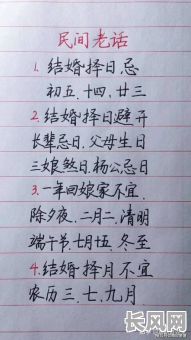 民间老话
1.结婚择日忌
初五.十四.廿三
2.结婚择日避开
长辈忌日.父母生日
三娘煞日.杨公忌日
3.一年回娘家不宜
除夕夜.二月二.清明
端午节.七月五.冬至
4.结婚择月不宜
农历三.七.九月
长风网